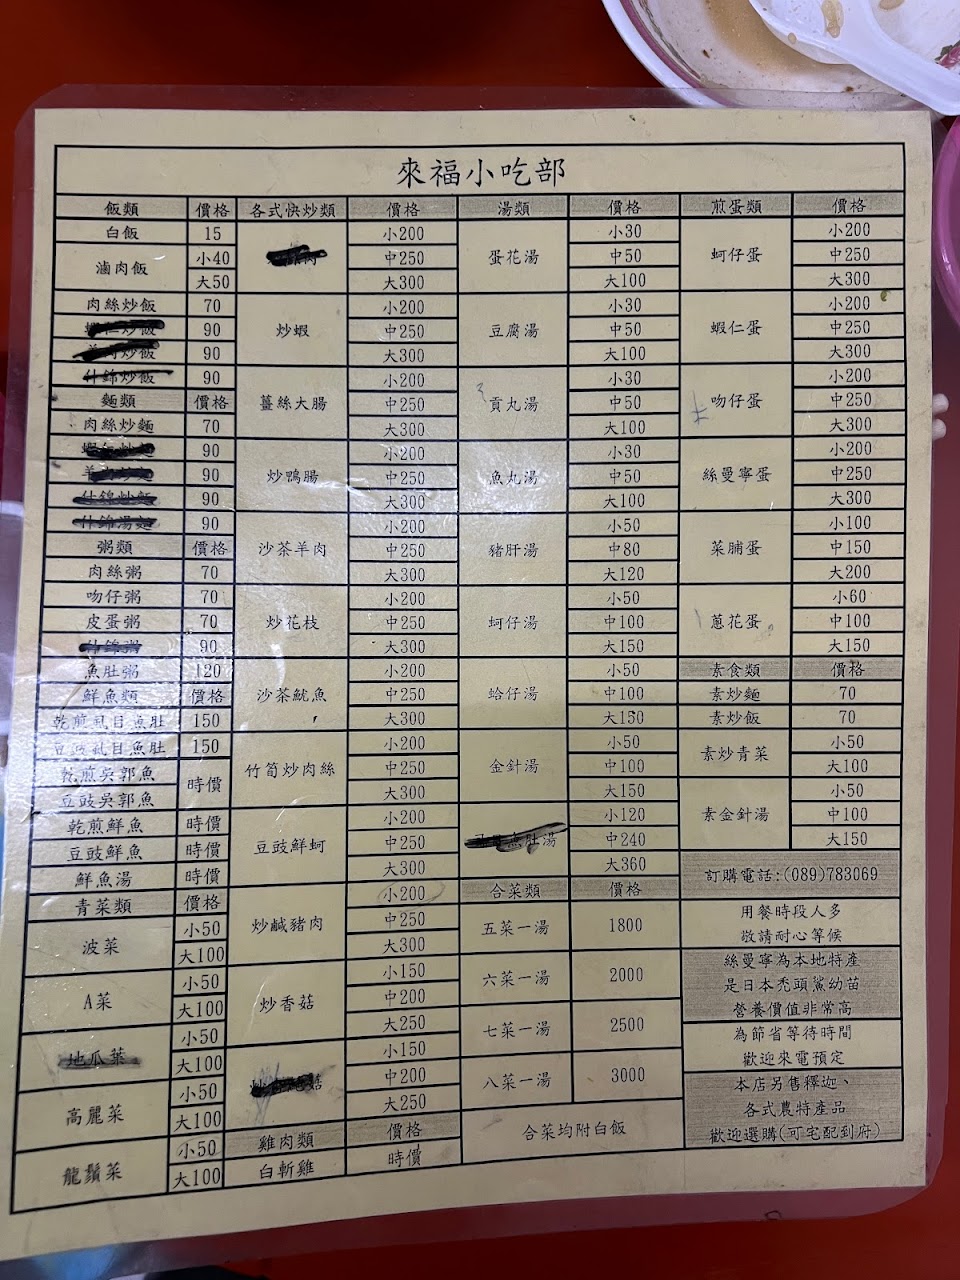 來福小吃部
飯類 價格
白飯 15
滷肉飯 小40
大50
肉絲炒飯 70
炒飯 90
炒飯 90
什錦炒飯 90
麵類 價格
肉絲炒麵 70
90
90
什錦炒麵 90
什錦湯麵 90
粥類 價格
肉絲粥 70
吻仔粥 70
皮蛋粥 70
什錦粥 90
魚肚粥 120
鮮魚類 價格
乾煎虱目魚肚 150
豆豉虱目魚肚 150
乾煎吳郭魚 時價
豆豉吳郭魚
乾煎鮮魚 時價
豆豉鮮魚 時價
鮮魚湯 時價
青菜類 價格
波菜 小50
大100
A菜 小50
大100
地瓜葉 小50
大100
高麗菜 小50
大100
龍鬚菜 小50
大100
各式快炒類 價格
小200
中250
大300
炒蝦 小200
中250
大300
薑絲大腸 小200
中250
大300
炒鴨腸 小200
中250
大300
沙茶羊肉 小200
中250
大300
炒花枝 小200
中250
大300
沙茶魷魚 小200
中250
大300
竹筍炒肉絲 小200
中250
大300
豆豉鮮蚵 小200
中250
大300
炒鹹豬肉 小200
中250
大300
炒香菇 小150
中200
大250
小150
中200
大250
雞肉類 價格
白斬雞 時價
湯類 價格
蛋花湯 小30
中50
大100
豆腐湯 小30
中50
大100
貢丸湯 小30
中50
大100
魚丸湯 小30
中50
大100
豬肝湯 小50
中80
大120
蚵仔湯 小50
中100
大150
蛤仔湯 小50
中100
大150
金針湯 小50
中100
大150
魚肚湯 小120
中240
大360
合菜類 價格
五菜一湯 1800
六菜一湯 2000
七菜一湯 2500
八菜一湯 3000
合菜均附白飯
煎蛋類 價格
蚵仔蛋 小200
中250
大300
蝦仁蛋 小200
中250
大300
吻仔蛋 小200
中250
大300
絲曼寧蛋 小200
中250
大300
菜脯蛋 小100
中150
大200
蔥花蛋 小60
中100
大150
素食類 價格
素炒麵 70
素炒飯 70
素炒青菜 小50
大100
素金針湯 小50
中100
大150
訂購電話:(089)783069
用餐時段人多
敬請耐心等候
絲曼寧為本地特產
是日本禿頭鯊幼苗
營養價值非常高
為節省等待時間
歡迎來電預定
本店另售釋迦、
各式農特產品
歡迎選購(可宅配到府)